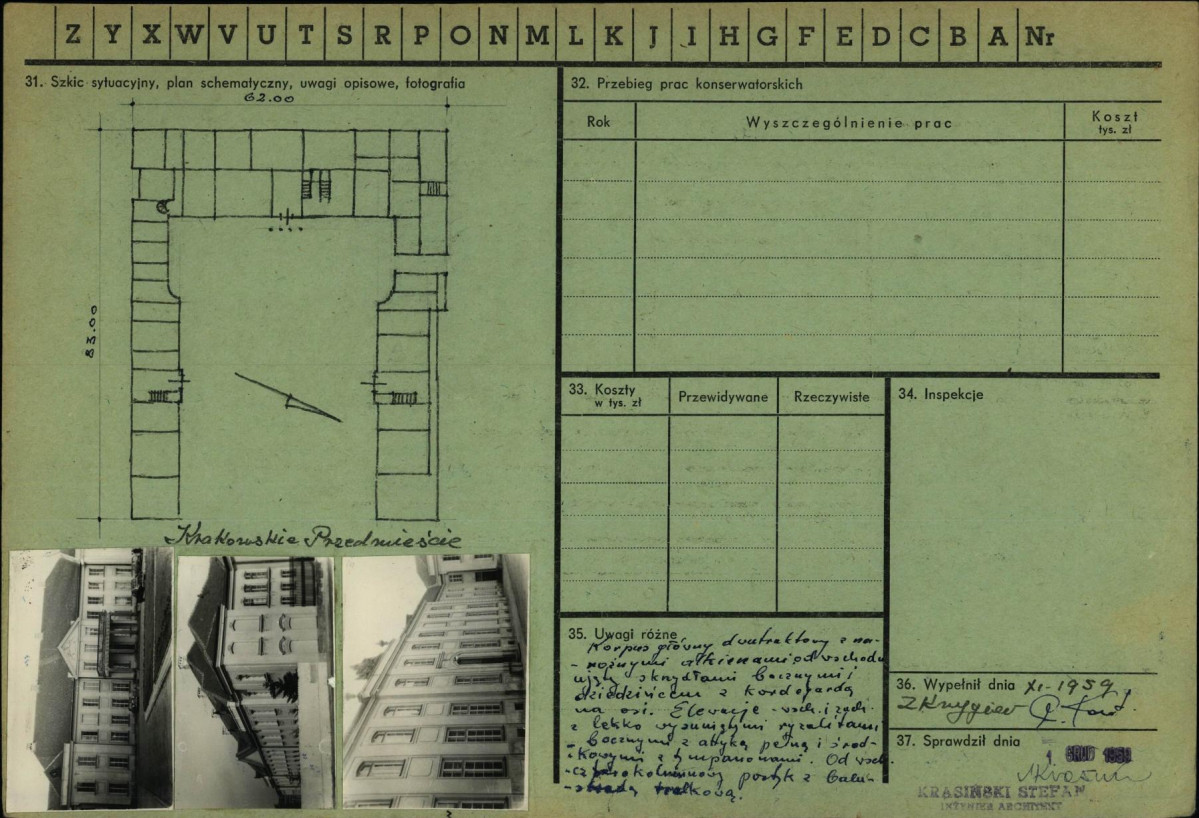 Z Y X W V U T S R P O N M L K J I H G F E D C B A Nr
31. Szkic sytuacyjny, plan schematyczny, uwagi opisowe, fotografia
62.00
83.00
Krakowskie Przedmieście
32. Przebieg prac konserwatorskich
Rok
Wyszczególnienie prac
Koszt
tys. zł
33. Koszty
w tys. zł
Przewidywane
Rzeczywiste
34. Inspekcje
35. Uwagi różne
Korpus główny dwutraktowy z na-
- rożnymi alkierzami od wschodu
skrzydłami bocznymi i
dziedzińcem z kordegardą
na osi. Elewacje wsch. i zach.
z lekko wysuniętymi ryzalitami
- bocznymi z attyką pełną i środ-
- kowymi z tympanonami. Od wsch.
- czterokolumnowy portyk z balu-
- stradą tralkową.
36. Wypełnił dnia XI-1959
37. Sprawdził dnia
1 GRUD 1959
KRASIŃSKI STEFAN
INŻYNIER ARCHITEKT